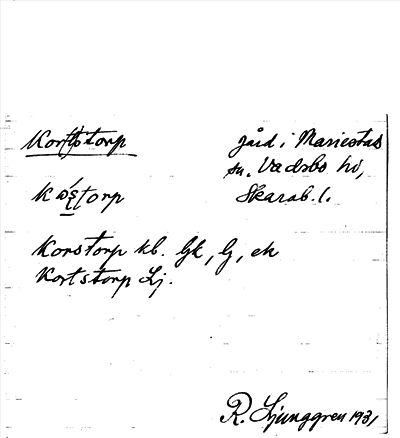 Korstorp gård i Mariestads
sn. Vadsbo hd,
Skarab. l.
Korstorp kb. Gk, Lj, ek
Kortstorp Lj.
R. Ljunggren 1931